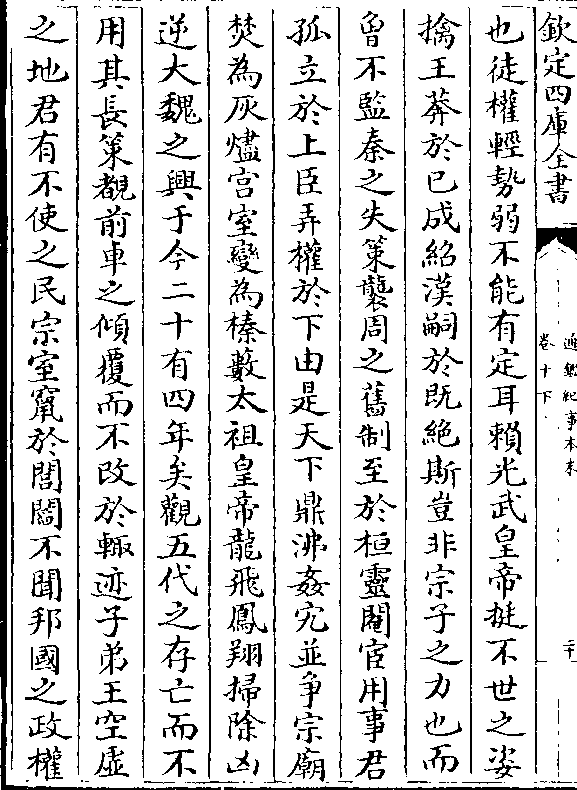 欽定四庫全書
通鑑紀事本末
卷十下
二十
也徒權輕勢弱不能有定耳賴光武皇帝挺不世之姿
擒王莽於已成紹漢嗣於既絶斯豈非宗子之力也而
曾不監秦之失策襲周之舊制至於桓靈閹宦用事君
孤立於上臣弄權於下由是天下鼎沸姦宄並爭宗廟
焚為灰燼宫室變為榛藪太祖皇帝龍飛鳳翔掃除凶
逆大魏之興于今二十有四年矣觀五代之存亡而不
用其長策覩前車之傾覆而不改於轍迹子弟王空虚
之地君有不使之民宗室竄於閭閻不聞邦國之政權